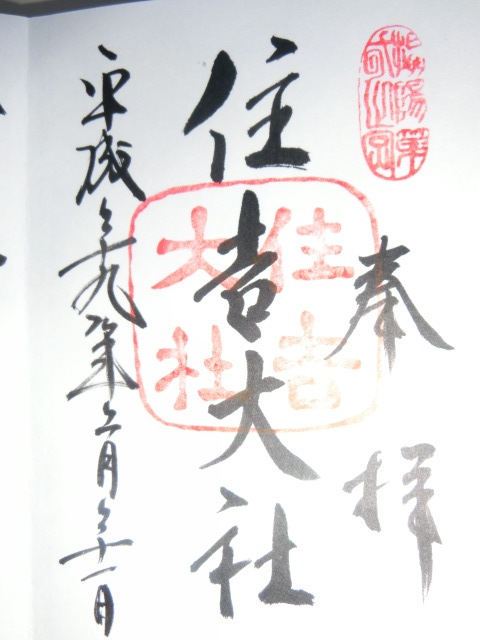 奉拝
住吉大社
住吉
大社
平成二十九年二月二十一日